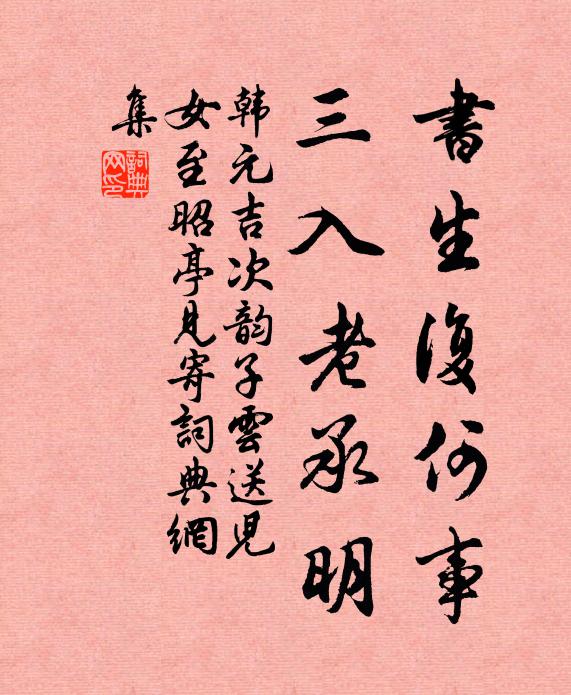 書生復何事
三入老承明
韩元吉次韵子雲送児
女至昭亭見寄詞典網
集
詞典网印